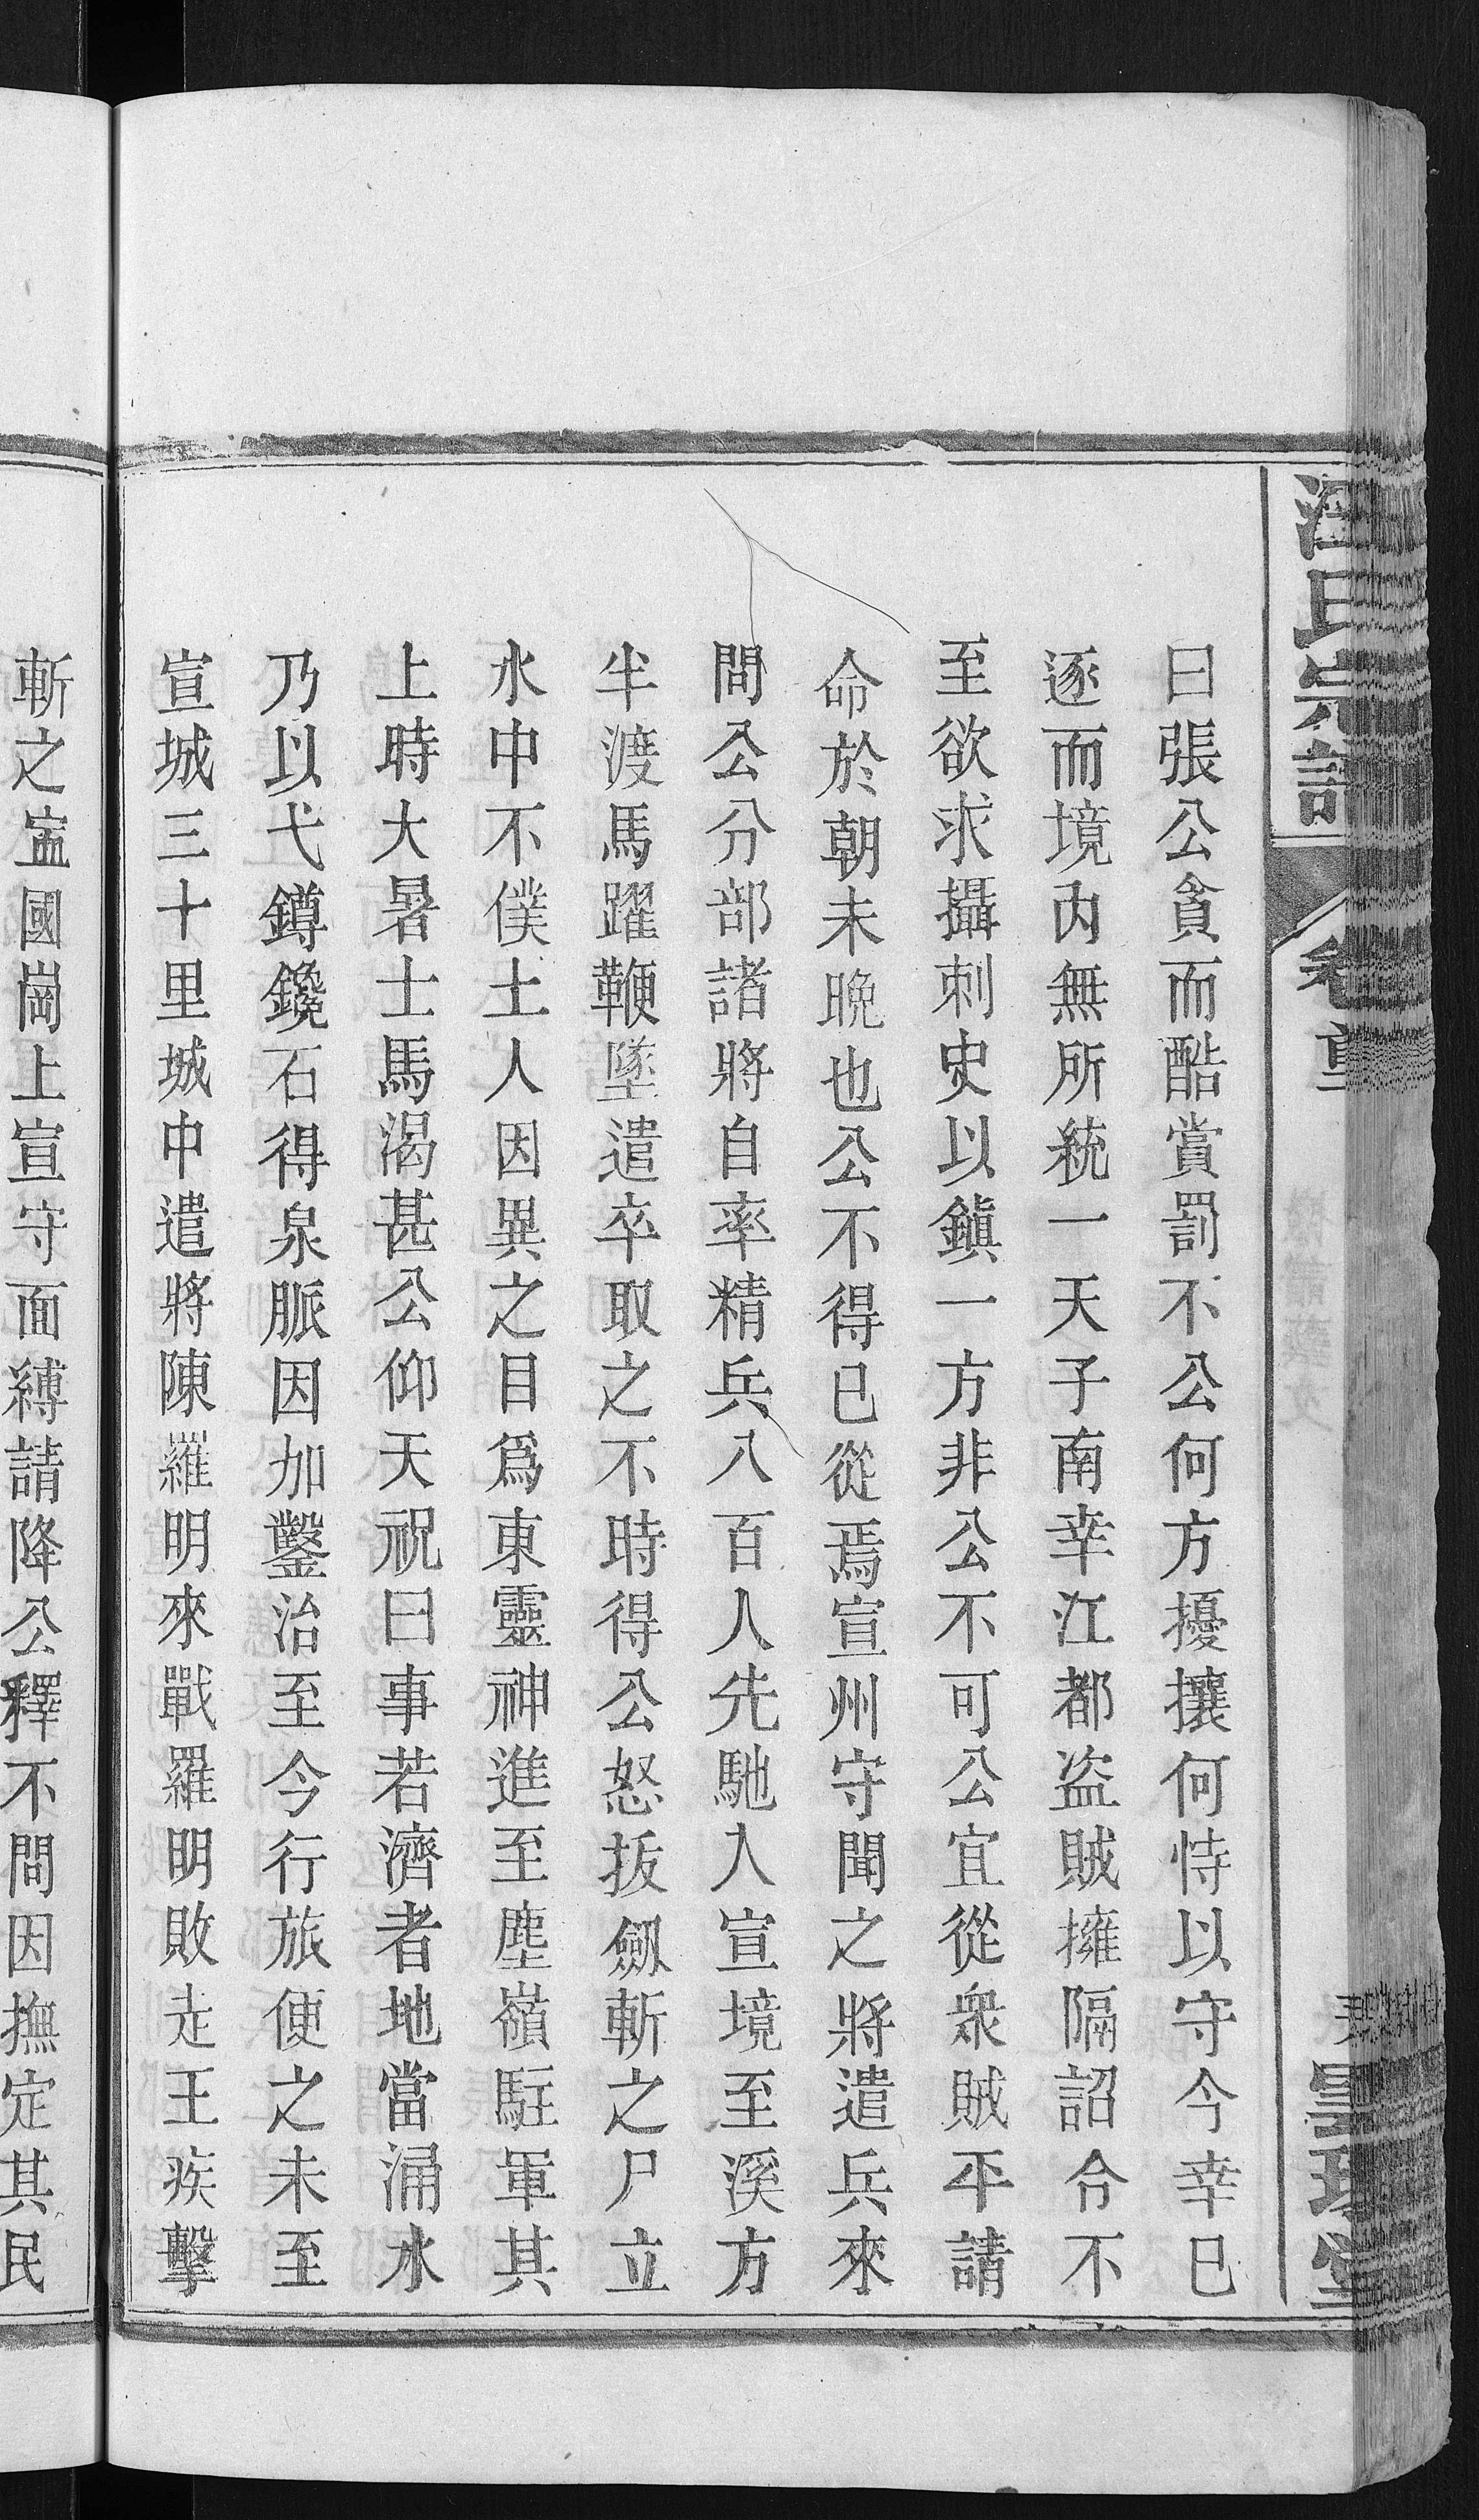 汪氏宗譜
卷首
堂
曰張公貪而酷賞罰不公何方擾攘何恃以守今幸巳
逐而境內無所統一天子南幸江都盗賊擁隔詔令不
至欲求攝刺史以鎮一方非公不可公宜從衆賊平請
命於朝未晚也公不得已從焉宣州守聞之將遣兵來
問公分部諸將自率精兵八百人先馳入宣境至溪方
半渡馬躍鞭墜遣卒取之不時得公怒拔劔斬之尸立
水中不僕土人因異之目爲東靈神進至塵嶺駐軍其
上時大暑士馬渴甚公仰天祝曰事若濟者地當涌水
乃以弋鐏鑱石得泉脈因加鑿治至今行旅便之未至
宣城三十里城中遣將陳羅明來戰羅明敗走王疾擊
斬之寍國崗上宣守面縛請降公釋不問因撫定其民